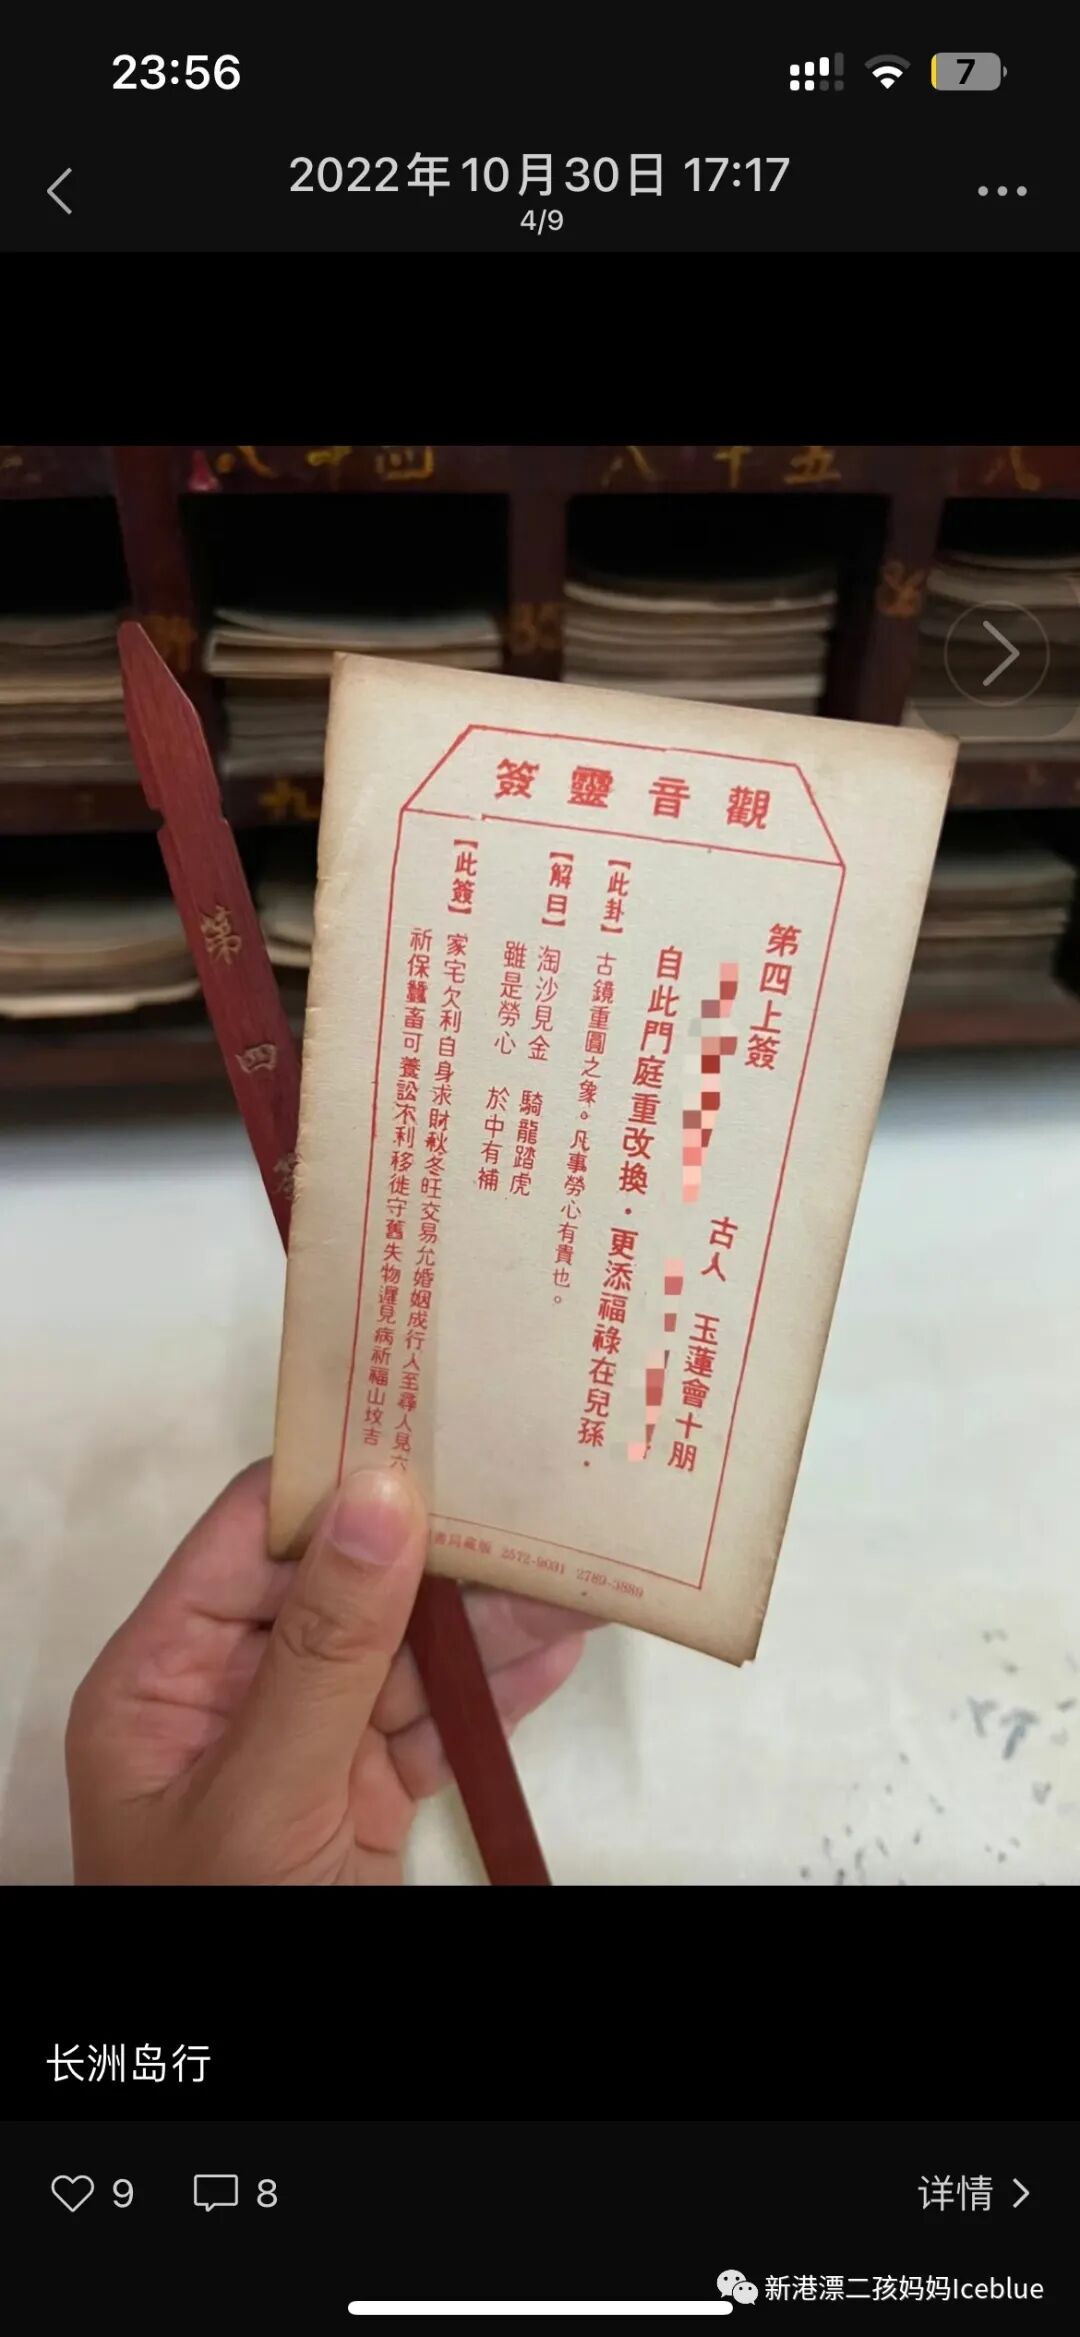 23:56
7
2022年10月30日 17:17
4/9
八十四
八十五
八
84
85
86
九
第四簽
觀音靈簽
第四上簽
古人 玉蓮會十朋
自此門庭重改換．更添福祿在兒孫．
【此卦】古鏡重圓之象。凡事勞心有貴也。
【解曰】淘沙見金 騎龍踏虎
雖是勞心 於中有補
【此簽】家宅欠利自身求財秋冬旺交易允婚姻成行人至尋人見六
祈保蠶畜可養訟不利移徙守舊失物遲見病祈福山坟吉
書局藏版 2572-9031 2789-3889
长洲岛行
9
8
详情
新港漂二孩妈妈Iceblue